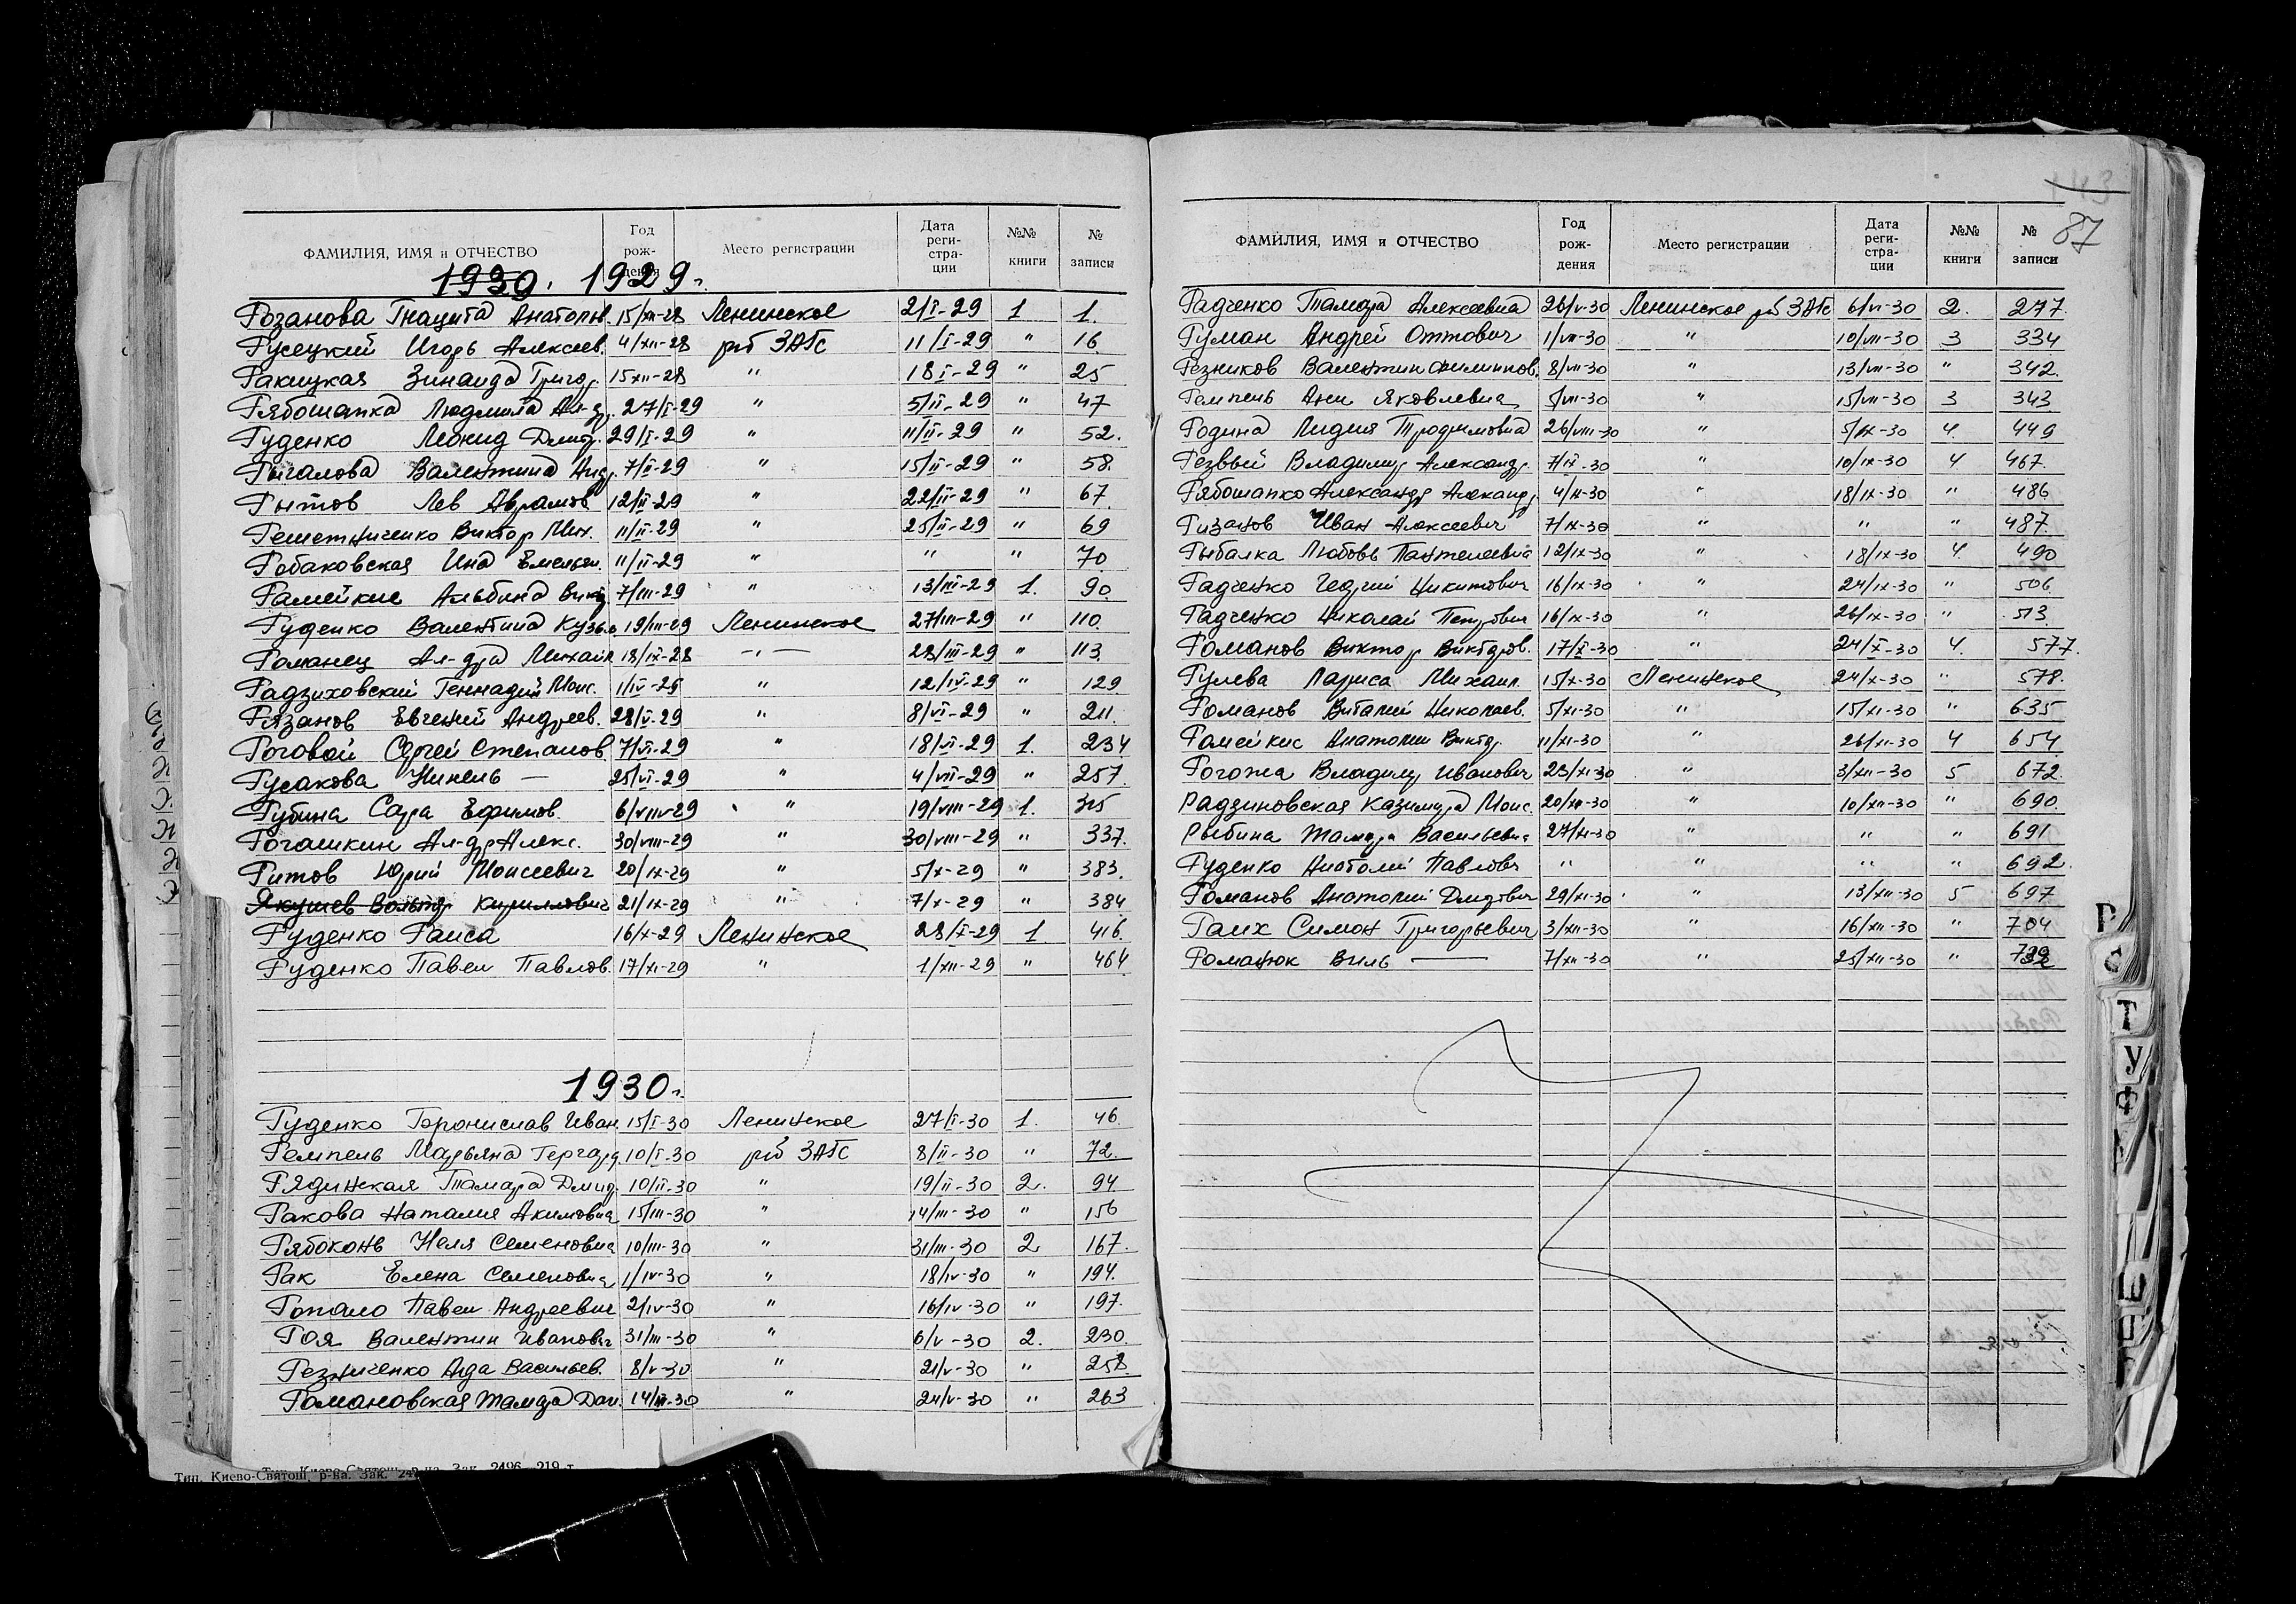 ФАМИЛИЯ, ИМЯ и ОТЧЕСТВО Год рождения Место регистрации Дата регистрации №№ книги № записи
1930. 1929 г.
Розанова Анатольев. 15/XII-28 Ленинское 2/I-29 1 1.
Русецкий Игорь Алексеев. 4/XII-28 рб ЗАГС 11/I-29 " 16
Ракицкая Зинаида Григор. 15 XII-28 " 18 I-29 " 25
Рябошапка Людмила Ал-др. 27/I-29 " 5/II-29 " 47
Руденко Леонид Дмитр. 29/I-29 " 11/II-29 " 52.
Рыгалова Валентина Андр. 7/II-29 " 15/II-29 " 58.
Рытов Лев Абрамов 12/II-29 " 22/II-29 " 67
Решетниченко Виктор Мих. 11/II-29 " 25/II-29 " 69
Робаковская Инна Емельян. 11/II-29 " " " 70
Рамейкис Альбина Викт. 7/III-29 " 13/III-29 1. 90
Руденко Валентина Кузьм. 19/III-29 Ленинское 27/III-29 " 110.
Романец Ал-дра Михайл 18/IX-28 -"- 28/III-29 " 113
Радзиховский Геннадий Моис. 1/IV-29 " 12/IV-29 " 129
Рязанов Евгений Андреев. 28/V-29 " 8/VI-29 " 211.
Роговой Сергей Степанов. 7/VI-29 " 18/VI-29 1. 234
Русакова Нинель — 25/VI-29 " 4/VII-29 " 257.
Рубина Сара Ефимов. 6/VIII-29 " 19/VIII-29 1. 315
Рогашкин Ал-др Алекс. 30/VIII-29 " 30/VIII-29 " 337.
Ритов Юрий Моисеевич 20/IX-29 " 5/X-29 " 383.
Якушев Вольтер Кириллович 21/IX-29 " 7/X-29 " 384
Руденко Раиса 16/X-29 Ленинское 28/X-29 1. 416.
Руденко Павел Павлов. 17/XI-29 " 1/XII-29 " 464
1930 г.
Руденко Бронислав Иван. 15/I-30 Ленинское 27/I-30 1. 46
Ремпель Марьяна Гергард. 10/I-30 рб ЗАГС 8/II-30 " 72.
Рядинская Тамара Дмитр. 10/II-30 " 19/II-30 2. 94
Ракова Наталия Акимовна 15/III-30 " 14/III-30 " 156
Рябоконь Неля Семеновна 10/III-30 " 31/III-30 2 167.
Рак Елена Семеновна 1/IV-30 " 18/IV-30 " 194.
Ропало Павел Андреевич 2/IV-30 " 16/IV-30 " 197.
Роя Валентин Иванович 31/III-30 " 6/V-30 2. 230
Резниченко Ада Васильев. 8/V-30 " 21/V-30 " 258.
Романовская Тамара Дан. 14/III-30 " 24/V-30 " 263
Тип. Киево-Святош. р-на. Зак. 2496—219 т.
143
87
ФАМИЛИЯ, ИМЯ и ОТЧЕСТВО Год рождения Место регистрации Дата регистрации №№ книги № записи
Радченко Тамара Алексеевна 26/V-30 Ленинское рб ЗАГС 6/VI-30 2. 277.
Руман Андрей Оттович 1/VII-30 " 10/VII-30 3 334
Резников Валентин Филиппов. 8/VII-30 " 13/VII-30 " 342.
Ремпель Анн Яковлевна 5/VII-30 " 15/VII-30 3 343
Родина Лидия Трофимовна 26/VIII-30 " 5/IX-30 4. 449
Резвый Владимир Александр. 7/IX-30 " 10/IX-30 4 467.
Рябошапко Александр Александ. 4/IX-30 " 18/IX-30 " 486
Ризанов Иван Алексеевич 7/IX-30 " " " 487.
Рыбалка Любовь Пантелеевна 12/IX-30 " 18/IX-30 4. 490
Радченко Георгий Никитович 16/IX-30 " 24/IX-30 " 506
Радченко Николай Петрович 16/IX-30 " 26/IX-30 " 513.
Романов Виктор Викторов. 17/X-30 " 24/X-30 4. 577.
Рулева Лариса Михаил. 15/X-30 Ленинское 24/X-30 " 578.
Романов Виталий Николаев. 5/XI-30 " 15/XI-30 " 635
Рамейкис Анатолий Виктор. 11/XI-30 " 26/XI-30 4 654
Рогожа Владимир Иванович 23/XI-30 " 3/XII-30 5 672.
Радзиновская Казимира Моис. 20/XI-30 " 10/XII-30 " 690.
Рыбина Тамара Васильевна 27/XI-30 " " " 691
Руденко Анатолий Павлович " " " " 692.
Романов Анатолий Дмитрович 29/XI-30 " 13/XII-30 5 697
Раих Симон Григорьевич 3/XII-30 " 16/XII-30 " 704
Романюк Виль — 7/XII-30 " 25/XII-30 "
Р
С
Т
У
Ф
Ш